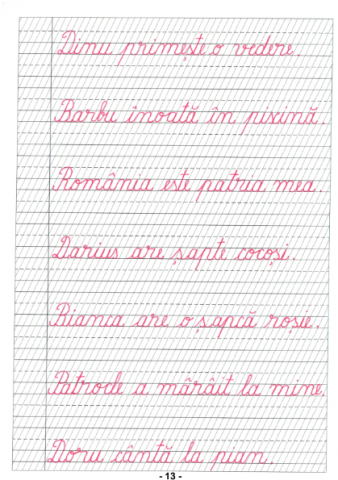 Dinu primește o vedere.
Barbu înoată în piscină.
România este patria mea.
Darius are șapte cocoși.
Bianca are o șapcă roșie.
Patrocle a mârâit la mine.
Doru cântă la pian.
- 13 -